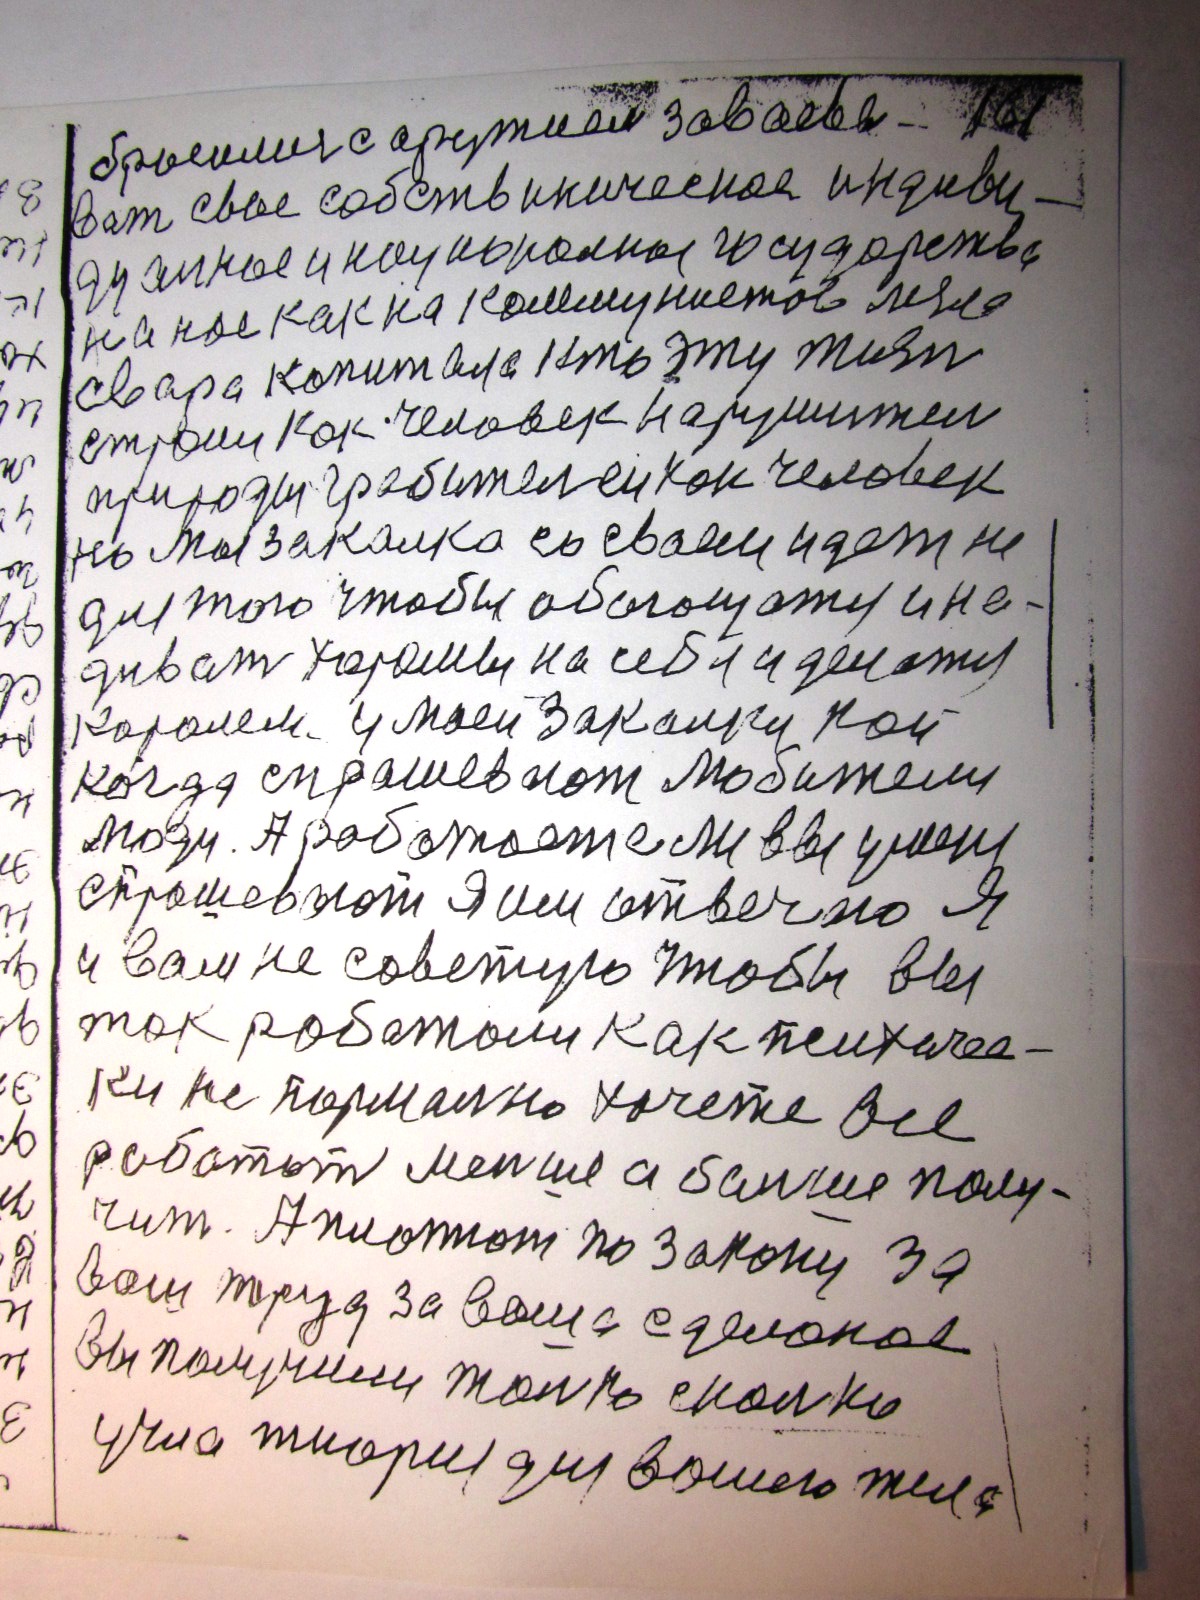 бросился с аружием заваева- 161
ват свое собственическое индиви-
дуилное и национолное государства
на нас как на коммунистов
свара капитала кто эту жизн
строил как человек нарушител
природы грабител и как человек
но моя закалка со сваеи идет не
для того чтобы обогощатя и на-
диват хорошы на себя и делатя
королем. у моеи закалки
когда спрашевают любители
люди. А работаете ли вы у меня
спрашевают Я им отвечаю Я
и вам не советую чтобы вы
так работали как психичес-
ки не нормално хочете все
работат менше а болше полу-
чит. А платют по закону за
ваш труд за ваша сделоное
вы получили толко сколко
учла тиория для вашего тела